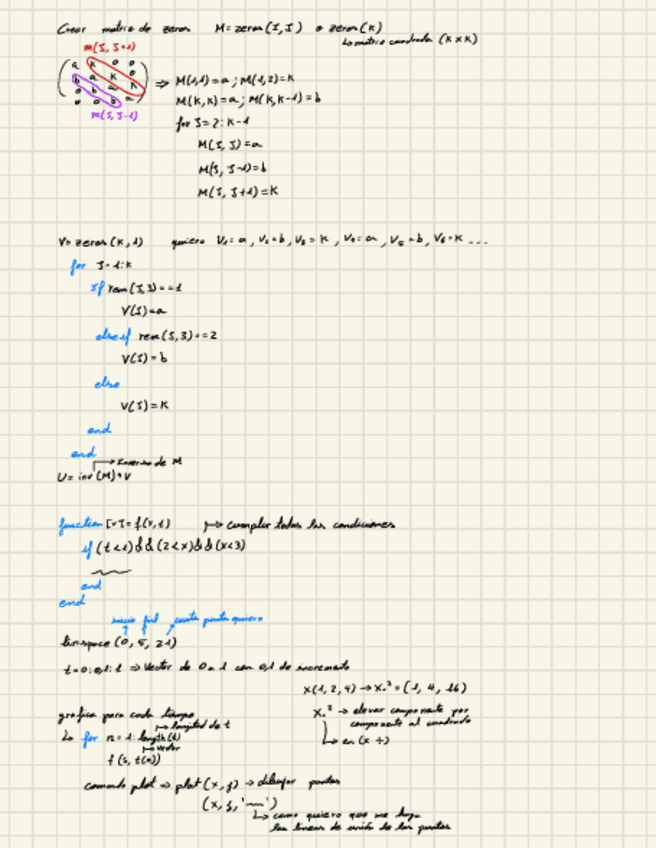 Crear matriz de zeros M= zeros(J,J) o zeros(K)
↳ matriz cuadrada (K x K)
M(J, J+1)
a K 0 0
b a K 0
0 b a K
0 0 b a
M(J, J-1)
⇒ M(1,1)=a ; M(1,2)=K
M(K,K)=a ; M(K,K-1)=b
for J=2:K-1
M(J, J)=a
M(J, J-1)=b
M(J, J+1)=K
V= zeros(K,1) quiero V₁=a, V₂=b, V₃=K, V₄=a, V₅=b, V₆=K ...
for J=1:K
If rem(J,3)==1
V(J)=a
elseif rem(J,3)==2
V(J)=b
else
V(J)=K
end
end
↦ Inversa de M
U= inv(M)*V
function [v]=f(x,t) ↦ cumplir todas las condiciones
if (t<1)&&(2<x)&&(x<3)
end
end
inicio final cuantos puntos quiero
linspace (0, 5, 21)
t=0:0,1:1 ⇒ Vector de 0 a 1 con 0,1 de incremento
x(1,2,4) → x.²=(1, 4, 16)
x.² → elevar componente por
componente al cuadrado
grafica para cada tiempo
↦ longitud de t
↳ for n=1:length(t)
↦ vector
f(s, t(n))
comando plot ⇒ plot(x,y) → dibujar puntos
(x, y, '~~')
↳ como quiero que me haga
las lineas de unión de los puntos